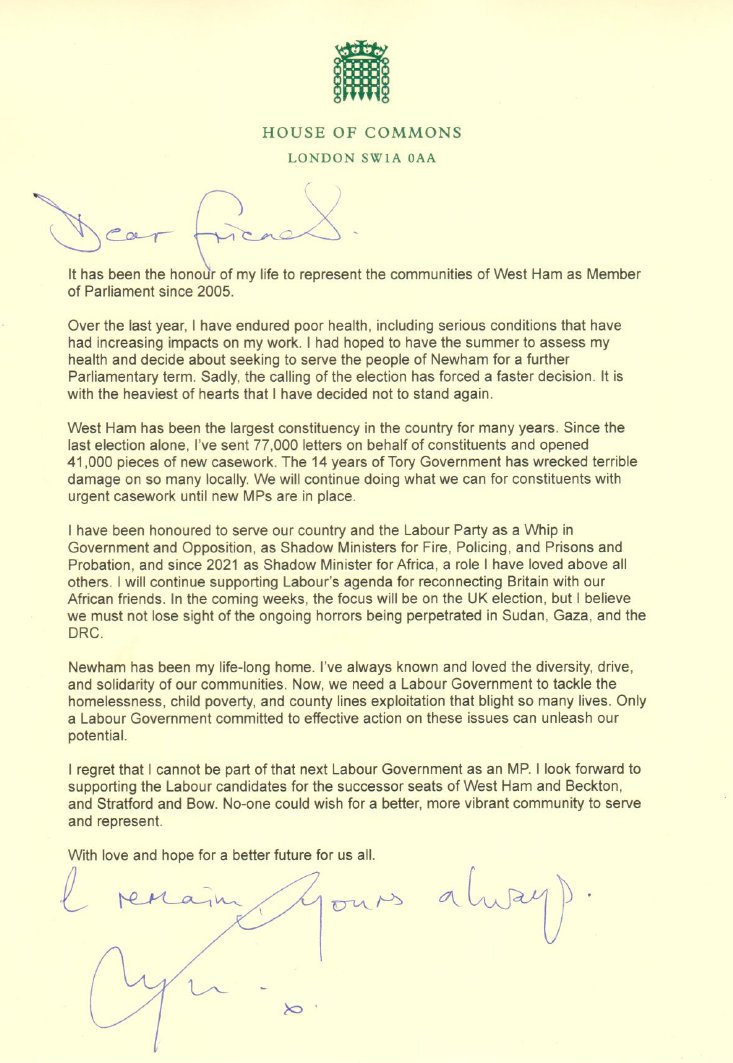 HOUSE OF COMMONS
LONDON SW1A 0AA
Dear friends.
It has been the honour of my life to represent the communities of West Ham as Member
of Parliament since 2005.
Over the last year, I have endured poor health, including serious conditions that have
had increasing impacts on my work. I had hoped to have the summer to assess my
health and decide about seeking to serve the people of Newham for a further
Parliamentary term. Sadly, the calling of the election has forced a faster decision. It is
with the heaviest of hearts that I have decided not to stand again.
West Ham has been the largest constituency in the country for many years. Since the
last election alone, I've sent 77,000 letters on behalf of constituents and opened
41,000 pieces of new casework. The 14 years of Tory Government has wrecked terrible
damage on so many locally. We will continue doing what we can for constituents with
urgent casework until new MPs are in place.
I have been honoured to serve our country and the Labour Party as a Whip in
Government and Opposition, as Shadow Ministers for Fire, Policing, and Prisons and
Probation, and since 2021 as Shadow Minister for Africa, a role I have loved above all
others. I will continue supporting Labour's agenda for reconnecting Britain with our
African friends. In the coming weeks, the focus will be on the UK election, but I believe
we must not lose sight of the ongoing horrors being perpetrated in Sudan, Gaza, and the
DRC.
Newham has been my life-long home. I've always known and loved the diversity, drive,
and solidarity of our communities. Now, we need a Labour Government to tackle the
homelessness, child poverty, and county lines exploitation that blight so many lives. Only
a Labour Government committed to effective action on these issues can unleash our
potential.
I regret that I cannot be part of that next Labour Government as an MP. I look forward to
supporting the Labour candidates for the successor seats of West Ham and Beckton,
and Stratford and Bow. No-one could wish for a better, more vibrant community to serve
and represent.
With love and hope for a better future for us all.
I remain, yours always.
Lyn - x.